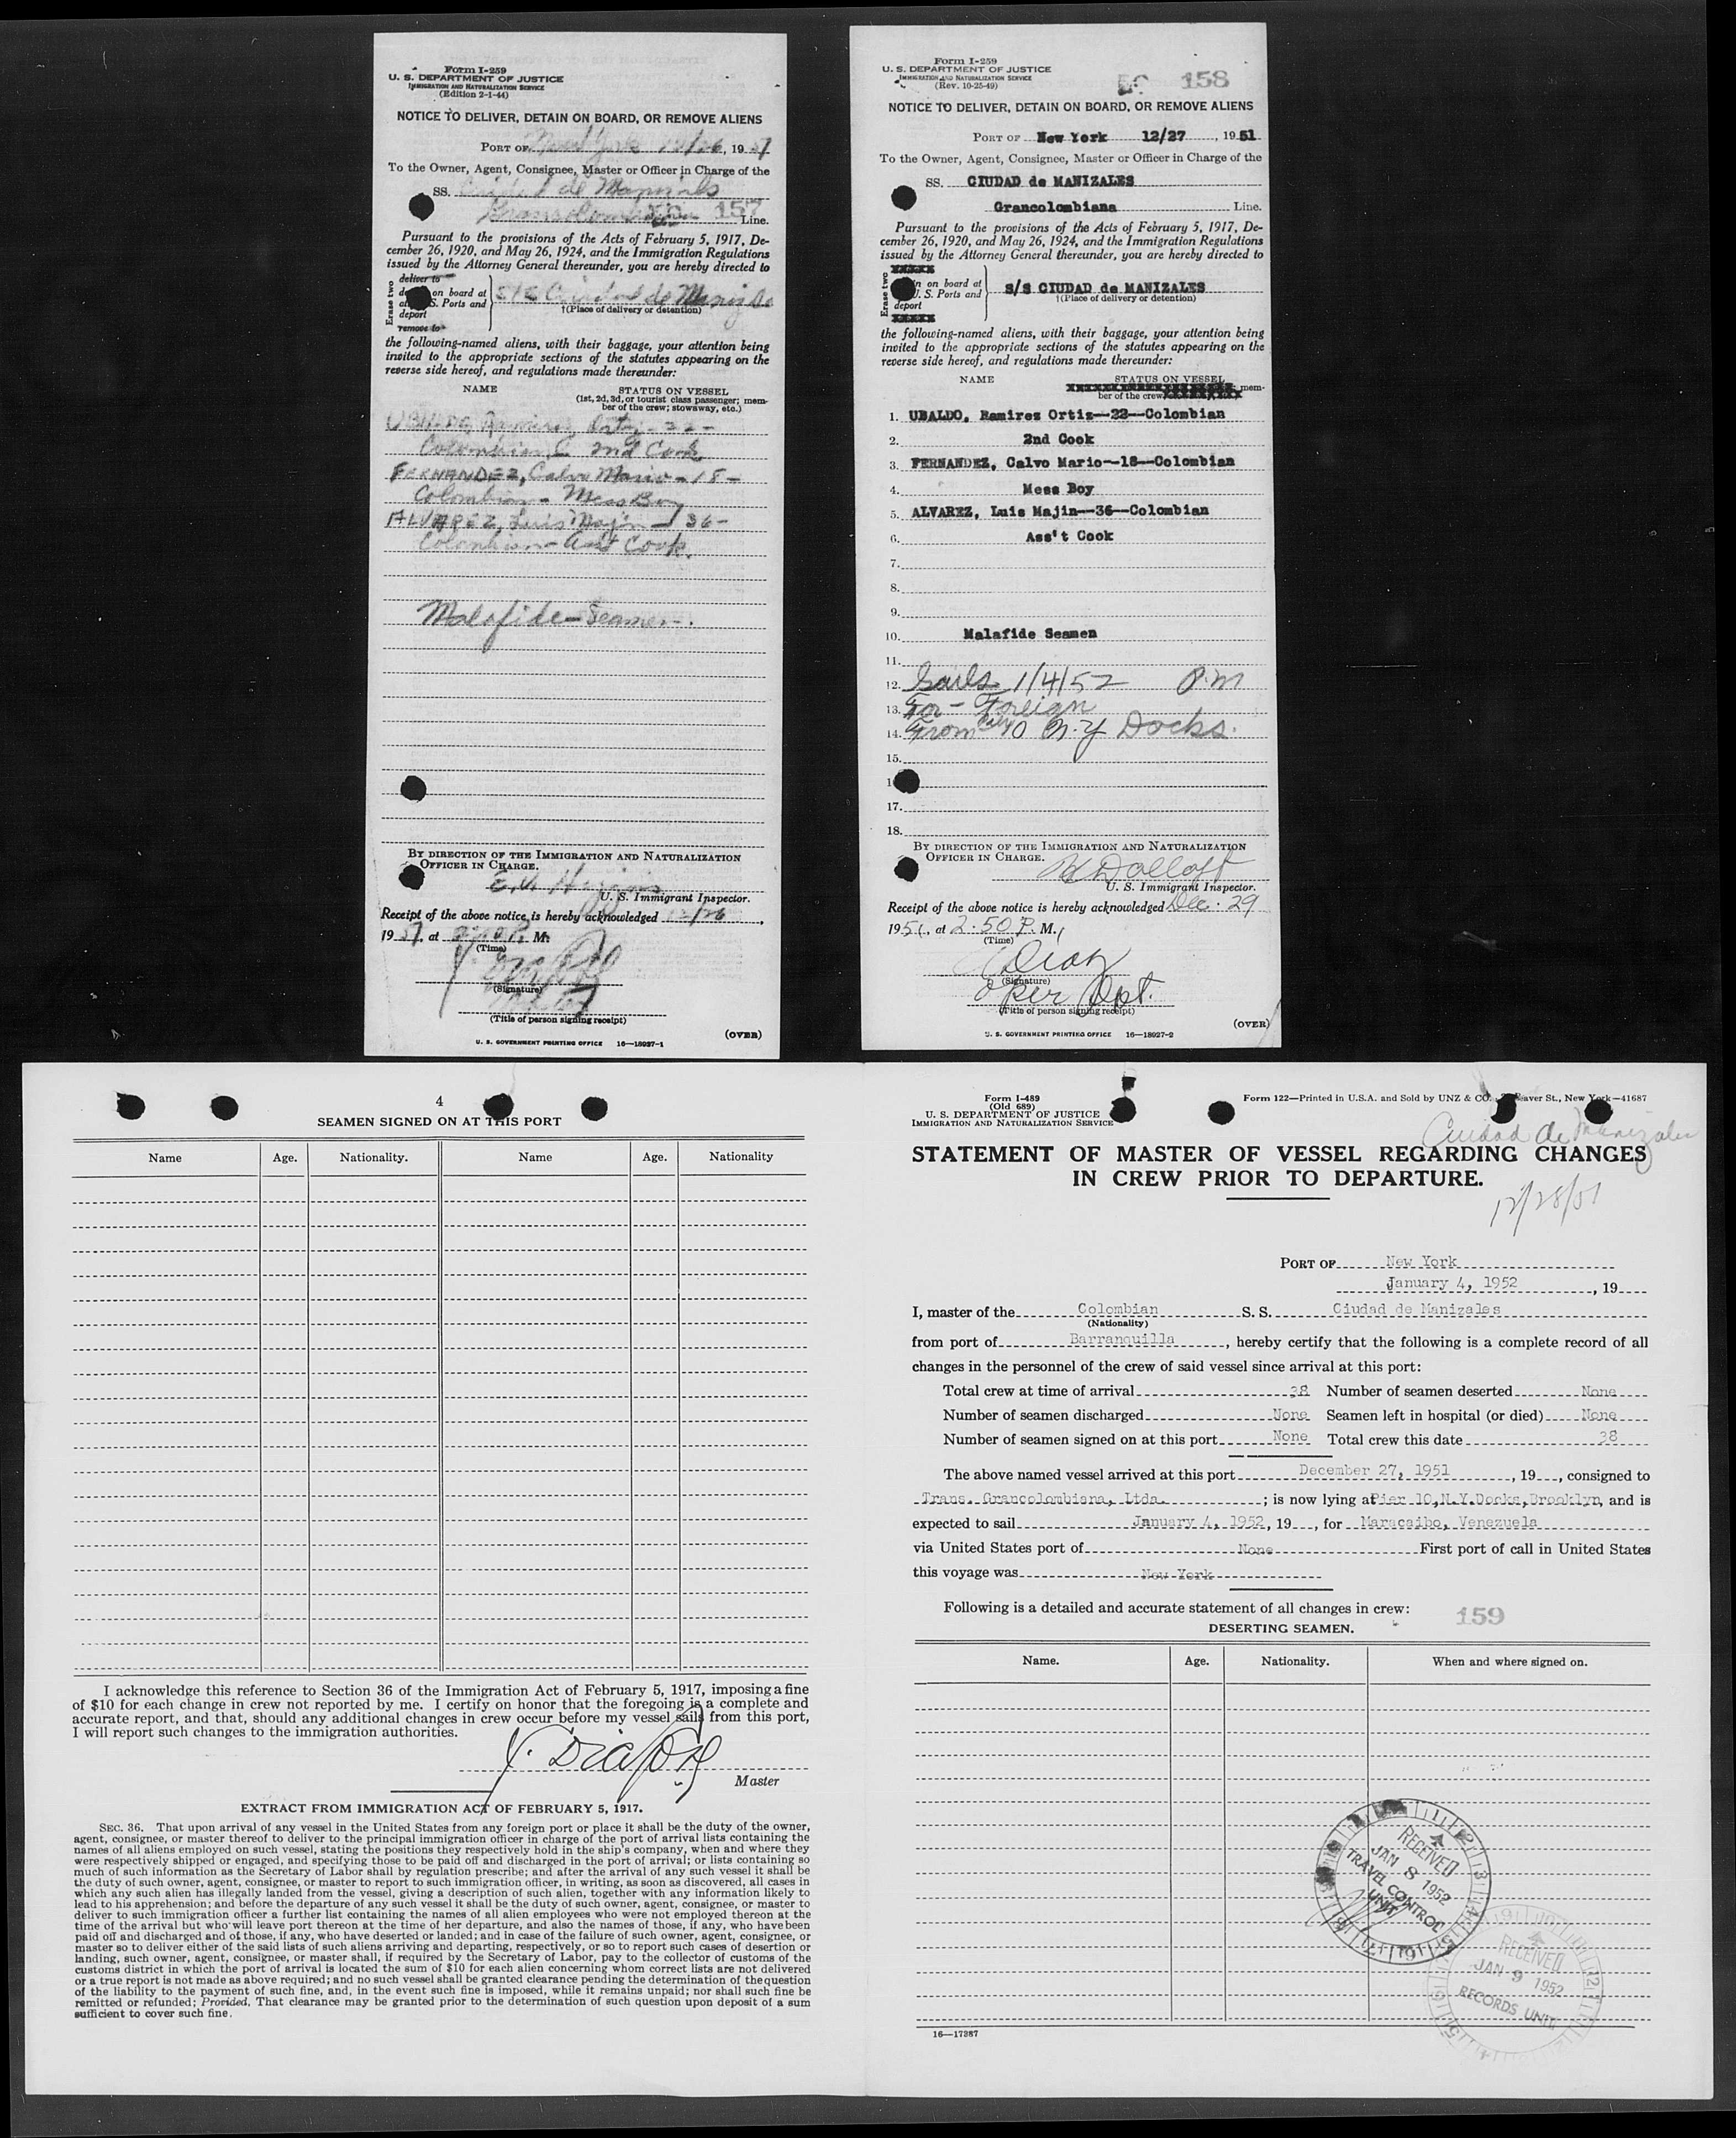 Form I-259
U. S. DEPARTMENT OF JUSTICE
IMMIGRATION AND NATURALIZATION SERVICE
(Edition 2-1-44)
NOTICE TO DELIVER, DETAIN ON BOARD, OR REMOVE ALIENS
PORT OF New York 12/26, 1951
To the Owner, Agent, Consignee, Master or Officer in Charge of the
SS. Ciudad de Manizales
Grancolombiana 157 Line.
Pursuant to the provisions of the Acts of February 5, 1917, De-
cember 26, 1920, and May 26, 1924, and the Immigration Regulations
issued by the Attorney General thereunder, you are hereby directed to
Erase two
deliver to
on board at
S. Ports and
deport
remove to
Ciudad de Manizales
†(Place of delivery or detention)
the following-named aliens, with their baggage, your attention being
invited to the appropriate sections of the statutes appearing on the
reverse side hereof, and regulations made thereunder:
NAME STATUS ON VESSEL
(1st, 2d, 3d, or tourist class passenger; mem-
ber of the crew; stowaway, etc.)
UBALDO, Ramirez Ortiz - 22 -
Colombian 2nd Cook
FERNANDEZ, Calvo Mario - 18 -
Colombian - Mess Boy
ALVAREZ, Luis Majin - 36 -
Colombian - Ass't Cook.
Malafide - Seamen.
BY DIRECTION OF THE IMMIGRATION AND NATURALIZATION
OFFICER IN CHARGE.
U. S. Immigrant Inspector.
Receipt of the above notice is hereby acknowledged 12/26,
1951, at P. M.
(Time)
(Signature)
(Title of person signing receipt)
(OVER)
U. S. GOVERNMENT PRINTING OFFICE 16—18927-1
Form I-259
U. S. DEPARTMENT OF JUSTICE
IMMIGRATION AND NATURALIZATION SERVICE
(Rev. 10-25-49)
158
NOTICE TO DELIVER, DETAIN ON BOARD, OR REMOVE ALIENS
PORT OF New York 12/27, 1951
To the Owner, Agent, Consignee, Master or Officer in Charge of the
SS. CIUDAD de MANIZALES
Grancolombiana Line.
Pursuant to the provisions of the Acts of February 5, 1917, De-
cember 26, 1920, and May 26, 1924, and the Immigration Regulations
issued by the Attorney General thereunder, you are hereby directed to
Erase two
xxxxx
in on board at
U. S. Ports and
deport
xxxxx
S/S CIUDAD de MANIZALES
†(Place of delivery or detention)
the following-named aliens, with their baggage, your attention being
invited to the appropriate sections of the statutes appearing on the
reverse side hereof, and regulations made thereunder:
NAME STATUS ON VESSEL
mem-
ber of the crew
1. UBALDO, Ramirez Ortiz--22--Colombian
2. 2nd Cook
3. FERNANDEZ, Calvo Mario--18--Colombian
4. Mess Boy
5. ALVAREZ, Luis Majin--36--Colombian
6. Ass't Cook
7.
8.
9.
10. Malafide Seamen
11.
12. Sails 1/4/52 P.M
13. For - Foreign
14. From Pier 10 N.Y Docks.
15.
17.
18.
BY DIRECTION OF THE IMMIGRATION AND NATURALIZATION
OFFICER IN CHARGE.
U. S. Immigrant Inspector.
Receipt of the above notice is hereby acknowledged Dec. 29
1951, at 2:50 P. M.,
(Time)
Diaz
(Signature)
Oper Dpt.
(Title of person signing receipt)
(OVER)
U. S. GOVERNMENT PRINTING OFFICE 16—18927-2
4
SEAMEN SIGNED ON AT THIS PORT
Name Age. Nationality. Name Age. Nationality
I acknowledge this reference to Section 36 of the Immigration Act of February 5, 1917, imposing a fine
of $10 for each change in crew not reported by me. I certify on honor that the foregoing is a complete and
accurate report, and that, should any additional changes in crew occur before my vessel sails from this port,
I will report such changes to the immigration authorities.
Master
EXTRACT FROM IMMIGRATION ACT OF FEBRUARY 5, 1917.
SEC. 36. That upon arrival of any vessel in the United States from any foreign port or place it shall be the duty of the owner,
agent, consignee, or master thereof to deliver to the principal immigration officer in charge of the port of arrival lists containing the
names of all aliens employed on such vessel, stating the positions they respectively hold in the ship's company, when and where they
were respectively shipped or engaged, and specifying those to be paid off and discharged in the port of arrival; or lists containing so
much of such information as the Secretary of Labor shall by regulation prescribe; and after the arrival of any such vessel it shall be
the duty of such owner, agent, consignee, or master to report to such immigration officer, in writing, as soon as discovered, all cases in
which any such alien has illegally landed from the vessel, giving a description of such alien, together with any information likely to
lead to his apprehension; and before the departure of any such vessel it shall be the duty of such owner, agent, consignee, or master to
deliver to such immigration officer a further list containing the names of all alien employees who were not employed thereon at the
time of the arrival but who will leave port thereon at the time of her departure, and also the names of those, if any, who have been
paid off and discharged and of those, if any, who have deserted or landed; and in case of the failure of such owner, agent, consignee, or
master so to deliver either of the said lists of such aliens arriving and departing, respectively, or so to report such cases of desertion or
landing, such owner, agent, consignee, or master shall, if required by the Secretary of Labor, pay to the collector of customs of the
customs district in which the port of arrival is located the sum of $10 for each alien concerning whom correct lists are not delivered
or a true report is not made as above required; and no such vessel shall be granted clearance pending the determination of the question
of the liability to the payment of such fine, and, in the event such fine is imposed, while it remains unpaid; nor shall such fine be
remitted or refunded; Provided, That clearance may be granted prior to the determination of such question upon deposit of a sum
sufficient to cover such fine.
Form I-489
(Old 689)
U. S. DEPARTMENT OF JUSTICE
IMMIGRATION AND NATURALIZATION SERVICE
Form 122—Printed in U.S.A. and Sold by UNZ & CO. Beaver St., New York—41687
Ciudad de Manizales
STATEMENT OF MASTER OF VESSEL REGARDING CHANGES
IN CREW PRIOR TO DEPARTURE.
12/28/51
PORT OF New York
January 4, 1952, 19
I, master of the Colombian S. S. Ciudad de Manizales
(Nationality)
from port of Barranquilla, hereby certify that the following is a complete record of all
changes in the personnel of the crew of said vessel since arrival at this port:
Total crew at time of arrival 38 Number of seamen deserted None
Number of seamen discharged None Seamen left in hospital (or died) None
Number of seamen signed on at this port None Total crew this date 38
The above named vessel arrived at this port December 27, 1951, 19, consigned to
Trans. Grancolombiana, Ltda.; is now lying at Pier 10,N.Y.Docks,Brooklyn, and is
expected to sail January 4, 1952, 19, for Maracaibo, Venezuela
via United States port of None First port of call in United States
this voyage was New York
Following is a detailed and accurate statement of all changes in crew:
159
DESERTING SEAMEN.
Name. Age. Nationality. When and where signed on.
RECEIVED
JAN 8 1952
TRAVEL CONTROL
UNIT
RECEIVED
JAN 9 1952
RECORDS UNIT
16—17287